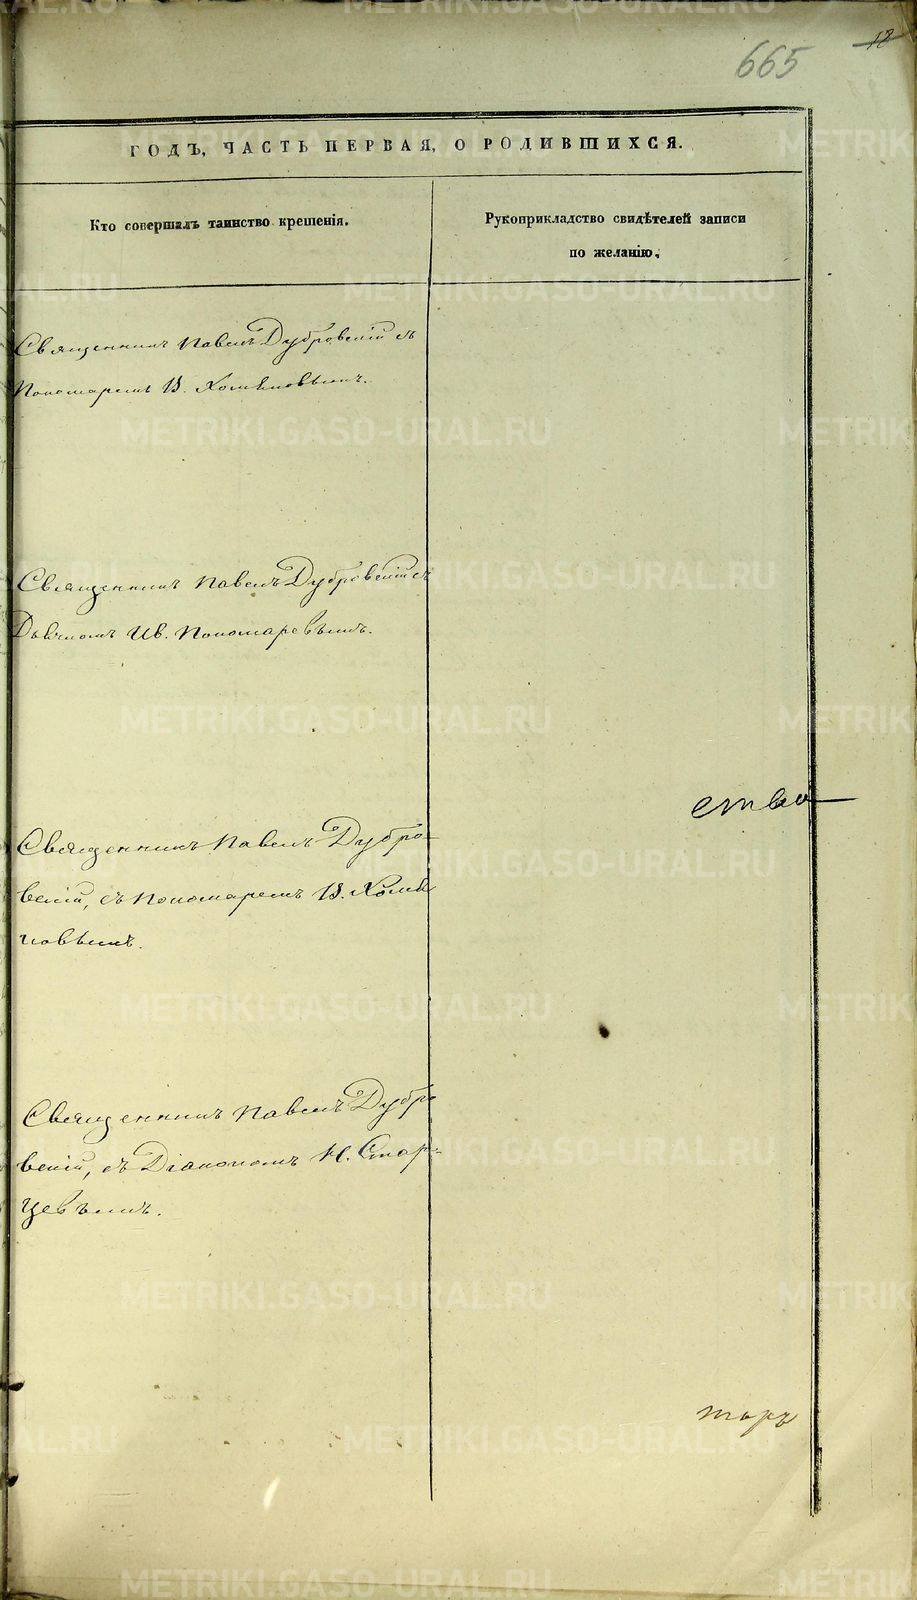 665
12
ГОДЪ, ЧАСТЬ ПЕРВАЯ, О РОДИВШИХСЯ.
Кто совершалъ таинство крещенія.
Рукоприкладство свидѣтелей записи
по желанію.
Священникъ Павелъ Дубровскій съ
Пономаремъ В. Хомяковымъ.
Священникъ Павелъ Дубровскій съ
Дьячкомъ Ив. Пономаревымъ.
ства
Священникъ Павелъ Дубро-
вскій, съ Пономаремъ В. Хомя
ковымъ.
Священникъ Павелъ Дубро
вскій, съ Діакономъ Н. Стар-
цевымъ.
торъ
METRIKI.GASO-URAL.RU